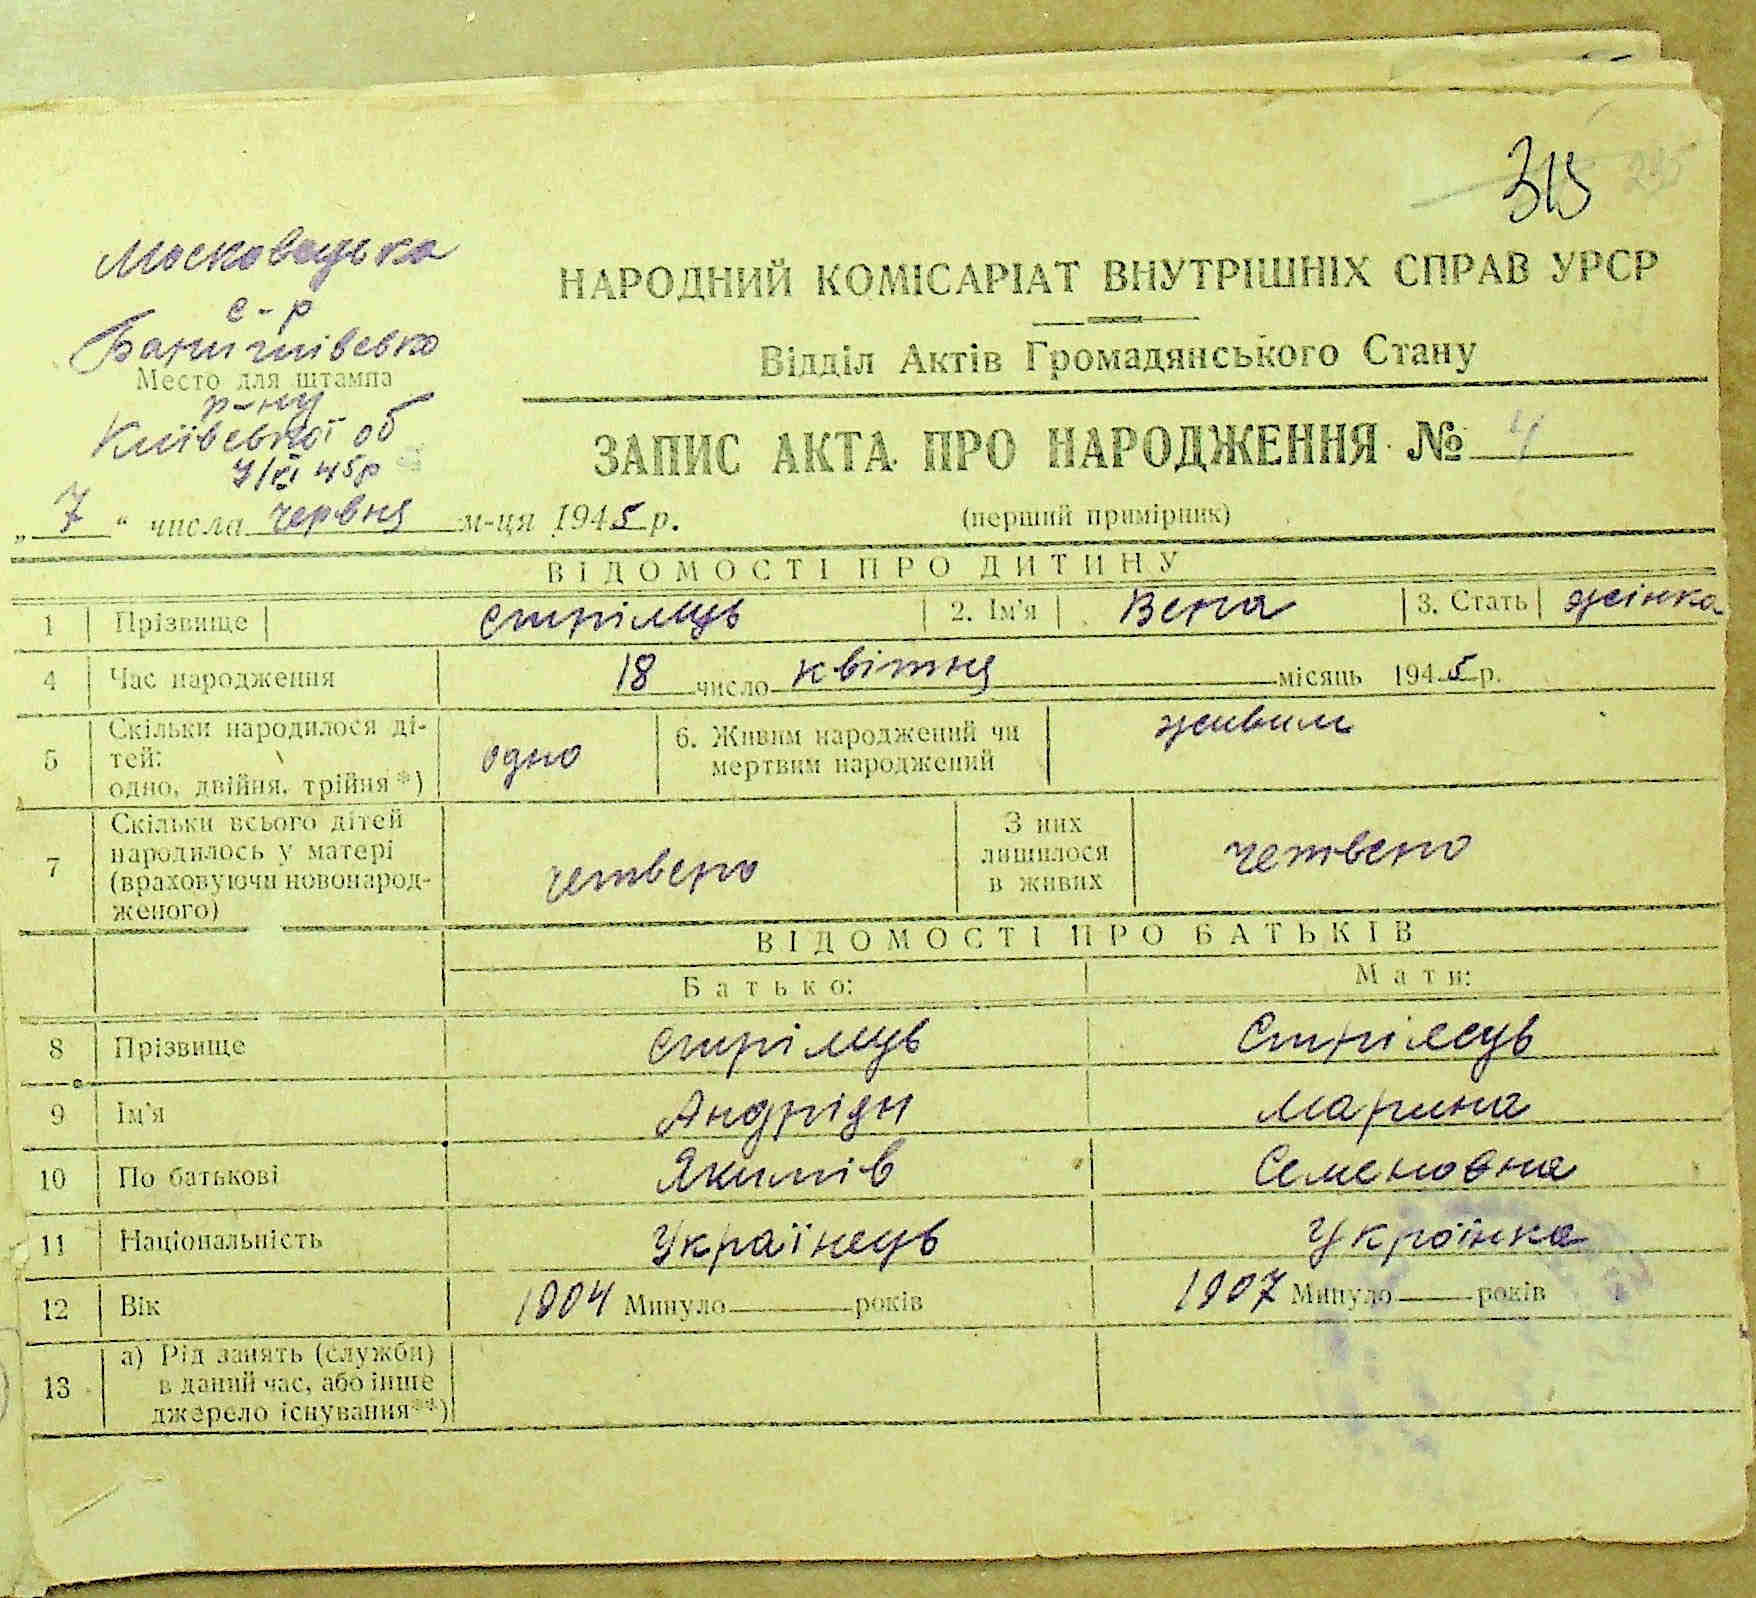 315
Московецька
с-р
Баришівсько
Место для штампа
р-ну
Київської об
7/VI 45р
НАРОДНИЙ КОМІСАРІАТ ВНУТРІШНІХ СПРАВ УРСР
Відділ Актів Громадянського Стану
ЗАПИС АКТА ПРО НАРОДЖЕННЯ № 4
„ 7 “ числа червня м-ця 1945 р. (перший примірник)
ВІДОМОСТІ ПРО ДИТИНУ
1 Прізвище Стрілець 2. Ім'я Вера 3. Стать жінка
4 Час народження 18 число квітня місяць 1945 р.
5 Скільки народилося ді-
тей:
одно, двійня, трійня*) одно 6. Живим народжений чи
мертвим народжений живим
7 Скільки всього дітей
народилось у матері
(враховуючи новонарод-
женого) четверо З них
лишилося
в живих четверо
ВІДОМОСТІ ПРО БАТЬКІВ
Батько: Мати:
8 Прізвище Стрілець Стрілець
9 Ім'я Андрій Марина
10 По батькові Якимів Семеновна
11 Національність Українець Українка
12 Вік 1904 Минуло років 1907 Минуло років
13 а) Рід занять (служби)
в даний час, або інше
джерело існування**)